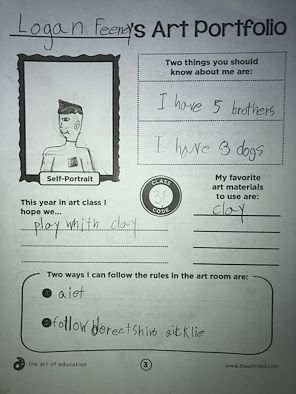 Logan Feeney's Art Portfolio
Two things you should
know about me are:
I have 5 brothers
I have 3 dogs
Self-Portrait
This year in art class I
hope we...
play whith clay
CLASS
CODE
My favorite
art materials
to use are:
clay
Two ways I can follow the rules in the art room are:
qiet
follow derectshins qicklie
the art of education
3
www.theartofed.com